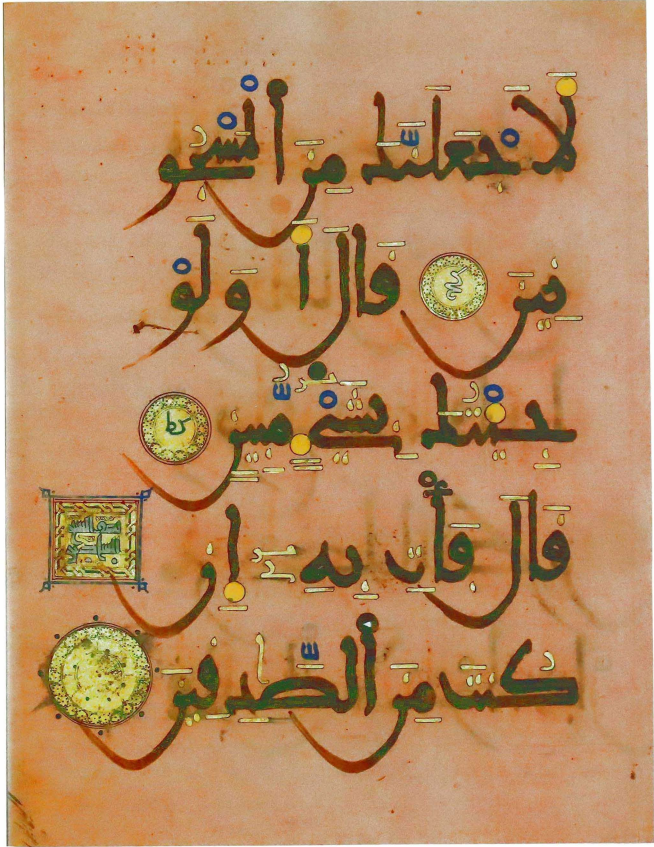 لَأَجْعَلَنَّكَ مِنَ ٱلْمَسْجُو
نِينَ كح قَالَ أَوَلَوْ
جِئْتُكَ بِشَىْءٍ مُّبِينٍ كط
قَالَ فَأْتِ بِهِ إِن
كُنتَ مِنَ ٱلصَّٰدِقِينَ